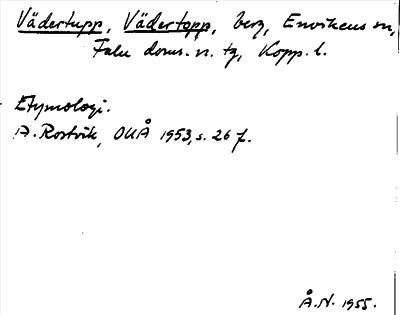 Vädertupp, Vädertopp, berg, Envikens sn,
Falu doms. n. tg, Kopp. l.
Etymologi.
A. Rostvik, OUÅ 1953, s. 26 f.
Å.N. 1955.